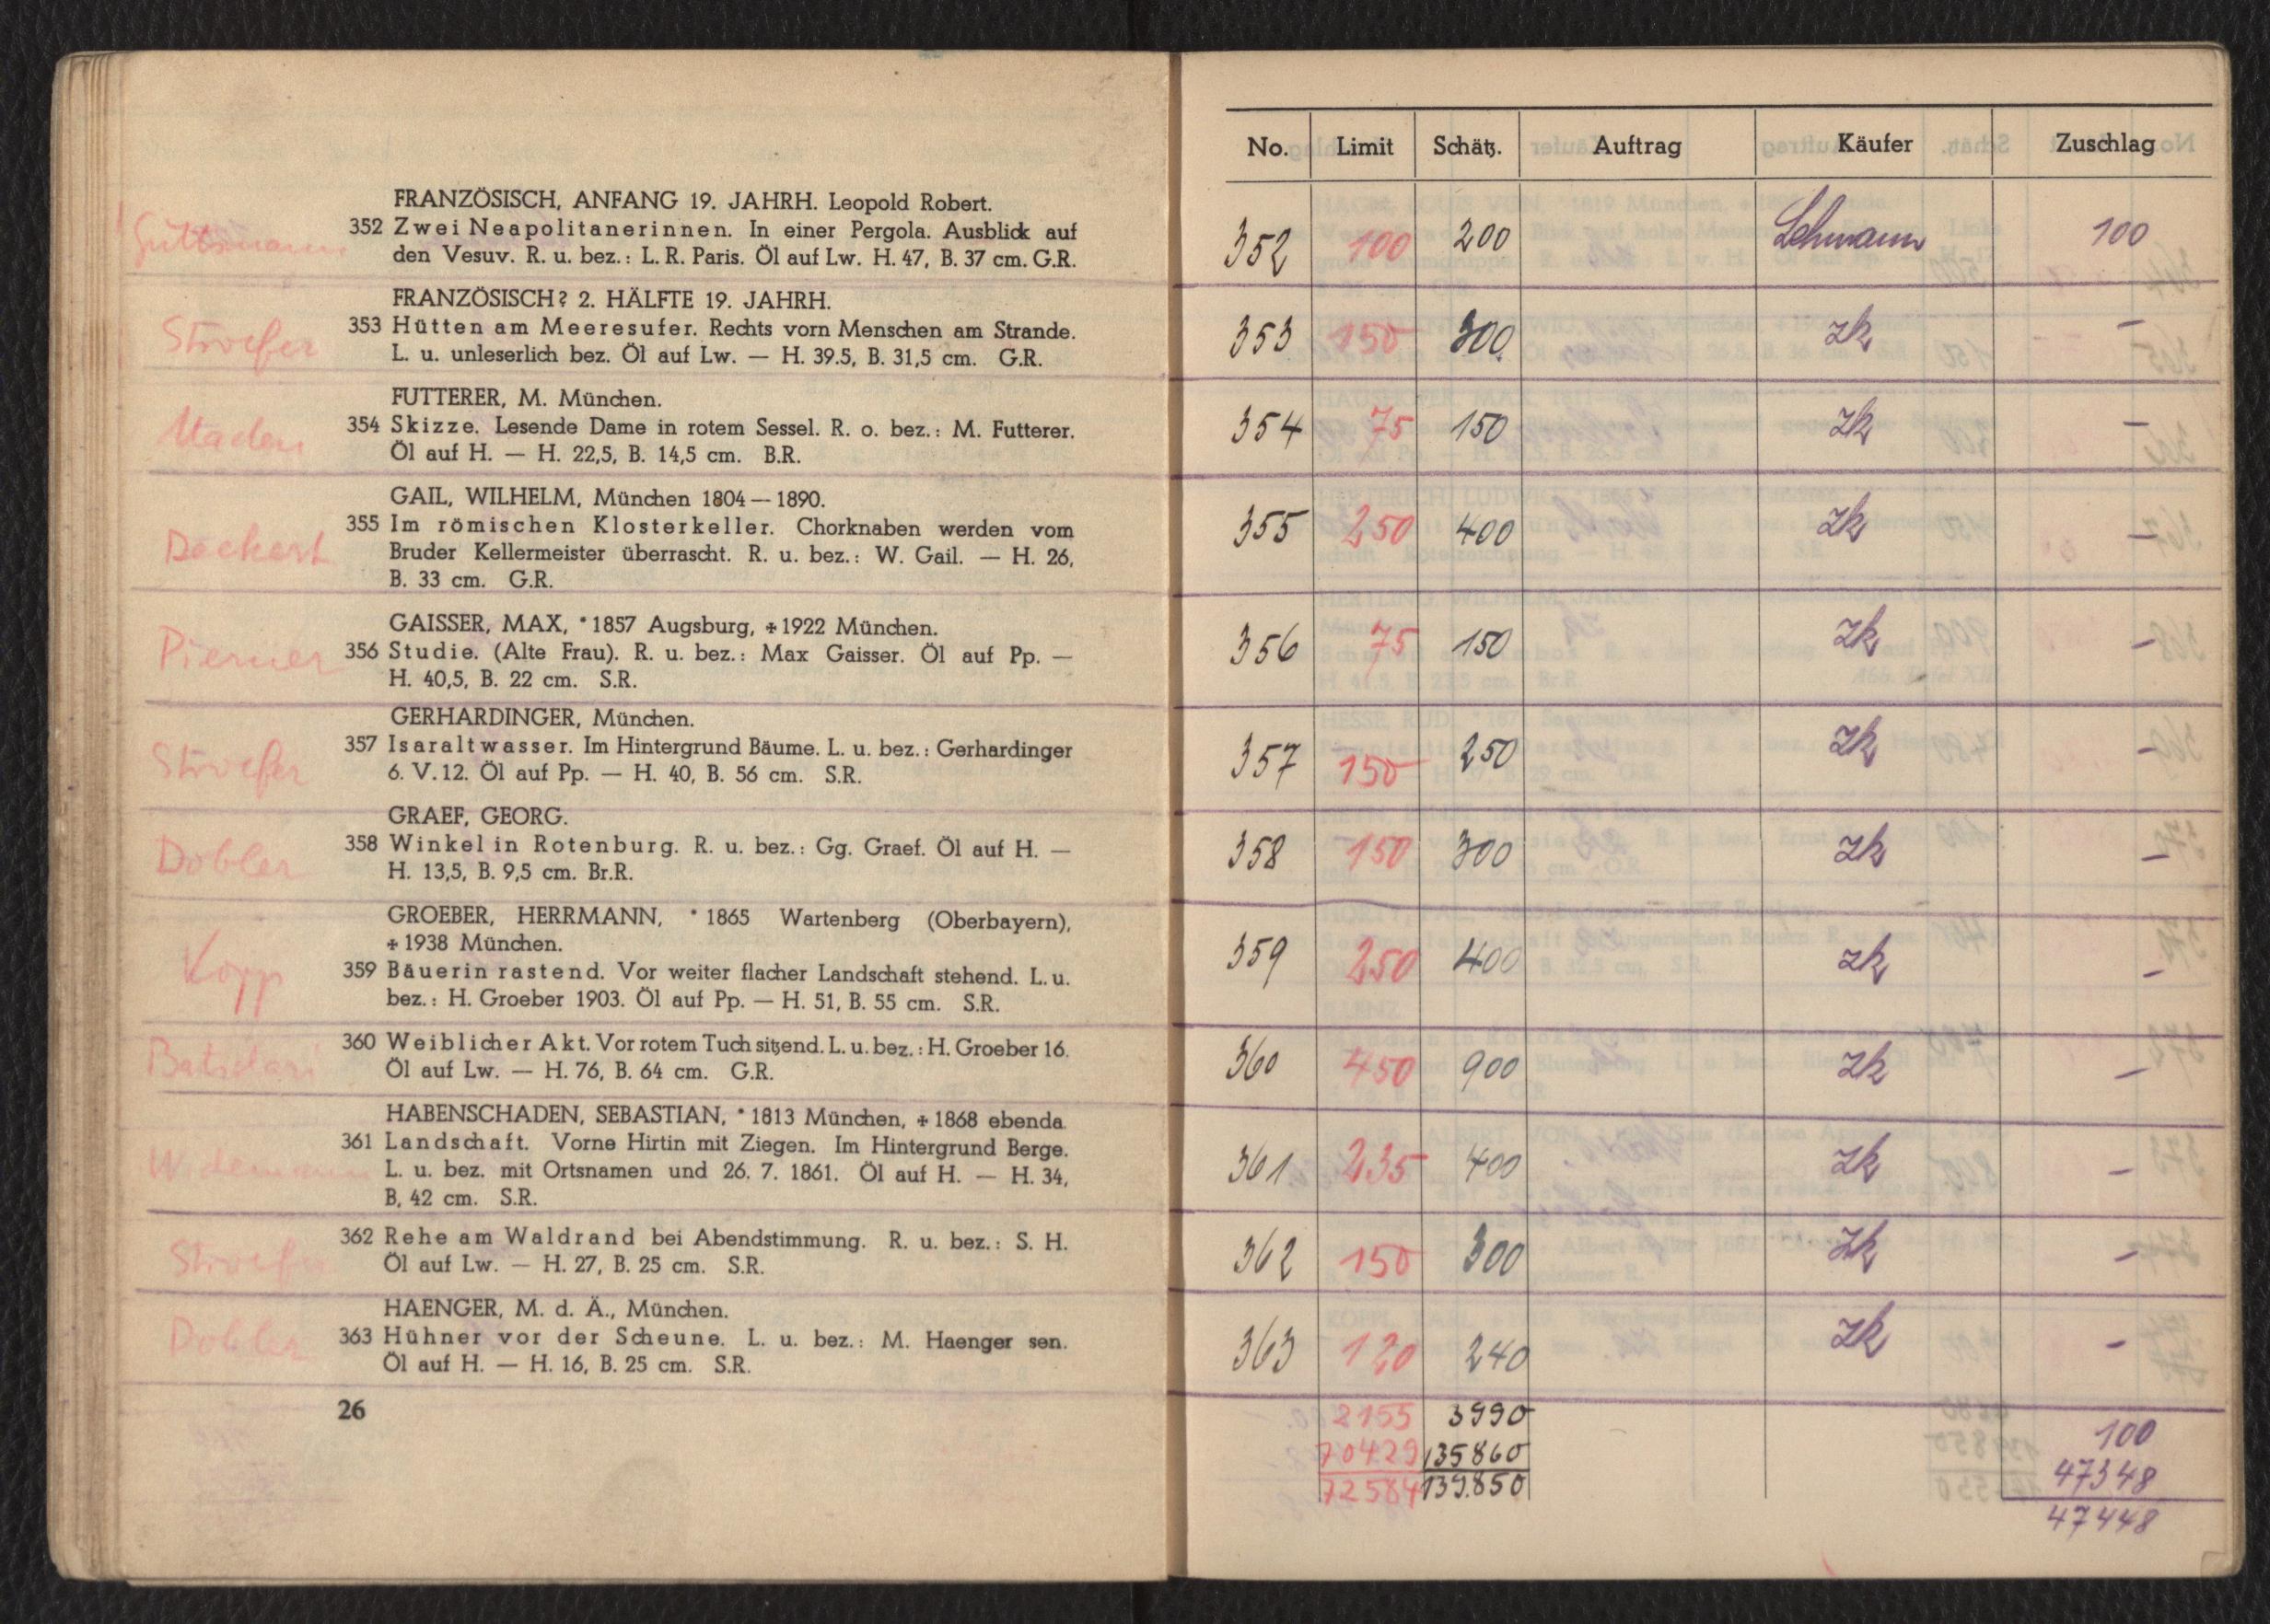 FRANZÖSISCH, ANFANG 19. JAHRH. Leopold Robert.
352 Zwei Neapolitanerinnen. In einer Pergola. Ausblick auf
den Vesuv. R. u. bez.: L. R. Paris. Öl auf Lw. H. 47, B. 37 cm. G.R.
Stroefer
FRANZÖSISCH? 2. HÄLFTE 19. JAHRH.
353 Hütten am Meeresufer. Rechts vorn Menschen am Strande.
L. u. unleserlich bez. Öl auf Lw. — H. 39.5, B. 31,5 cm. G.R.
FUTTERER, M. München.
354 Skizze. Lesende Dame in rotem Sessel. R. o. bez.: M. Futterer.
Öl auf H. — H. 22,5, B. 14,5 cm. B.R.
Deckert
GAIL, WILHELM, München 1804—1890.
355 Im römischen Klosterkeller. Chorknaben werden vom
Bruder Kellermeister überrascht. R. u. bez.: W. Gail. — H. 26,
B. 33 cm. G.R.
Pierner
GAISSER, MAX, *1857 Augsburg, +1922 München.
356 Studie. (Alte Frau). R. u. bez.: Max Gaisser. Öl auf Pp. —
H. 40,5, B. 22 cm. S.R.
Stroefer
GERHARDINGER, München.
357 Isaraltwasser. Im Hintergrund Bäume. L. u. bez.: Gerhardinger
6. V. 12. Öl auf Pp. — H. 40, B. 56 cm. S.R.
Dobler
GRAEF, GEORG.
358 Winkel in Rotenburg. R. u. bez.: Gg. Graef. Öl auf H. —
H. 13,5, B. 9,5 cm. Br.R.
Kopp
GROEBER, HERRMANN, *1865 Wartenberg (Oberbayern),
+1938 München.
359 Bäuerin rastend. Vor weiter flacher Landschaft stehend. L. u.
bez.: H. Groeber 1903. Öl auf Pp. — H. 51, B. 55 cm. S.R.
360 Weiblicher Akt. Vor rotem Tuch sitzend. L. u. bez.: H. Groeber 16.
Öl auf Lw. — H. 76, B. 64 cm. G.R.
HABENSCHADEN, SEBASTIAN, *1813 München, +1868 ebenda.
361 Landschaft. Vorne Hirtin mit Ziegen. Im Hintergrund Berge.
L. u. bez. mit Ortsnamen und 26. 7. 1861. Öl auf H. — H. 34,
B, 42 cm. S.R.
Stroefer
362 Rehe am Waldrand bei Abendstimmung. R. u. bez.: S. H.
Öl auf Lw. — H. 27, B. 25 cm. S.R.
Dobler
HAENGER, M. d. Ä., München.
363 Hühner vor der Scheune. L. u. bez.: M. Haenger sen.
Öl auf H. — H. 16, B. 25 cm. S.R.
26
No. Limit Schätz. Auftrag Käufer Zuschlag
352 100 200 Lehmann 100
353 150 300 zk –
354 75 150 zk –
355 250 400 zk –
356 75 150 zk –
357 150 250 zk –
358 150 300 zk –
359 250 400 zk –
360 450 900 zk –
361 235 400 zk –
362 150 300 zk –
363 120 240 zk –
2155 3990 100
70429 135860 47348
72584 139.850 47448